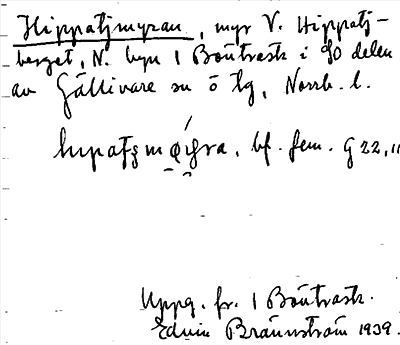 Hippatjmyran, myr V. Hippatj-
berget, N. byn 1 Bönträsk i SO delen
av Gällivare sn o tg, Norrb. l.
bf. fem. G 22, 11
Uppg. fr. 1 Bönträsk.
Edvin Brännström 1939.